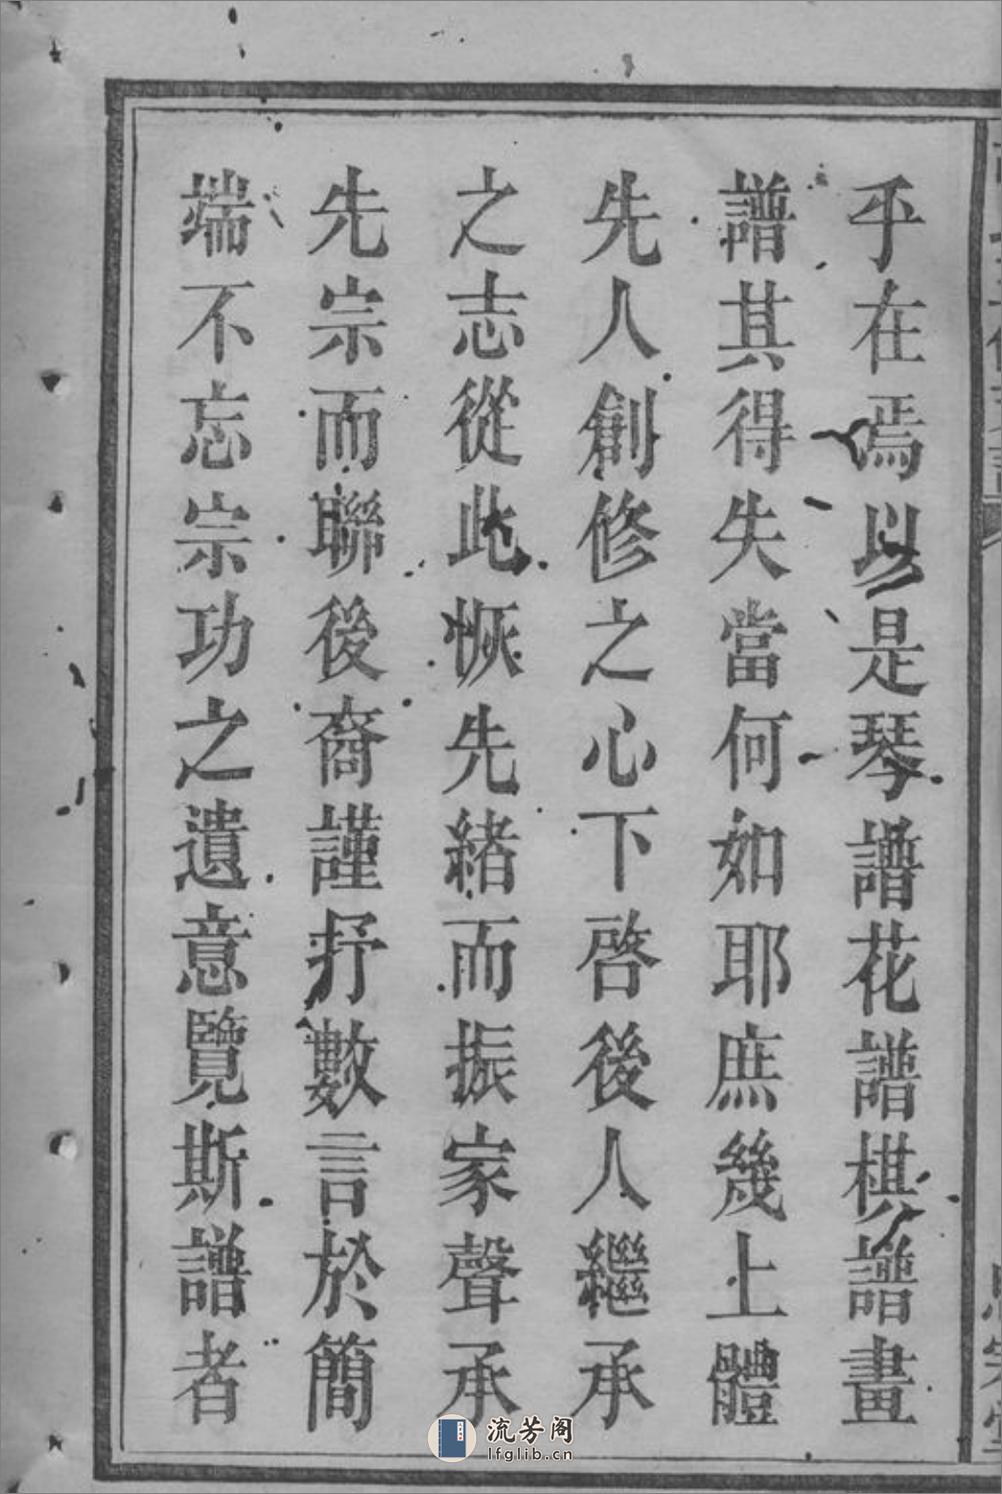 乎在焉以是琴譜花譜棋譜畫
譜其得失當何如耶庶幾上體
先人創修之心下啓後人繼承
之志從此恢先緒而振家聲承
先宗而聯後裔謹抒數言於簡
端不忘宗功之遺意覽斯譜者
流芳阁
lfglib.cn